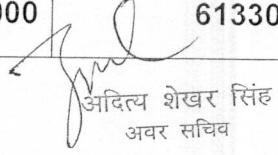 000 61330
अदित्य शेखर सिंह
अवर सचिव